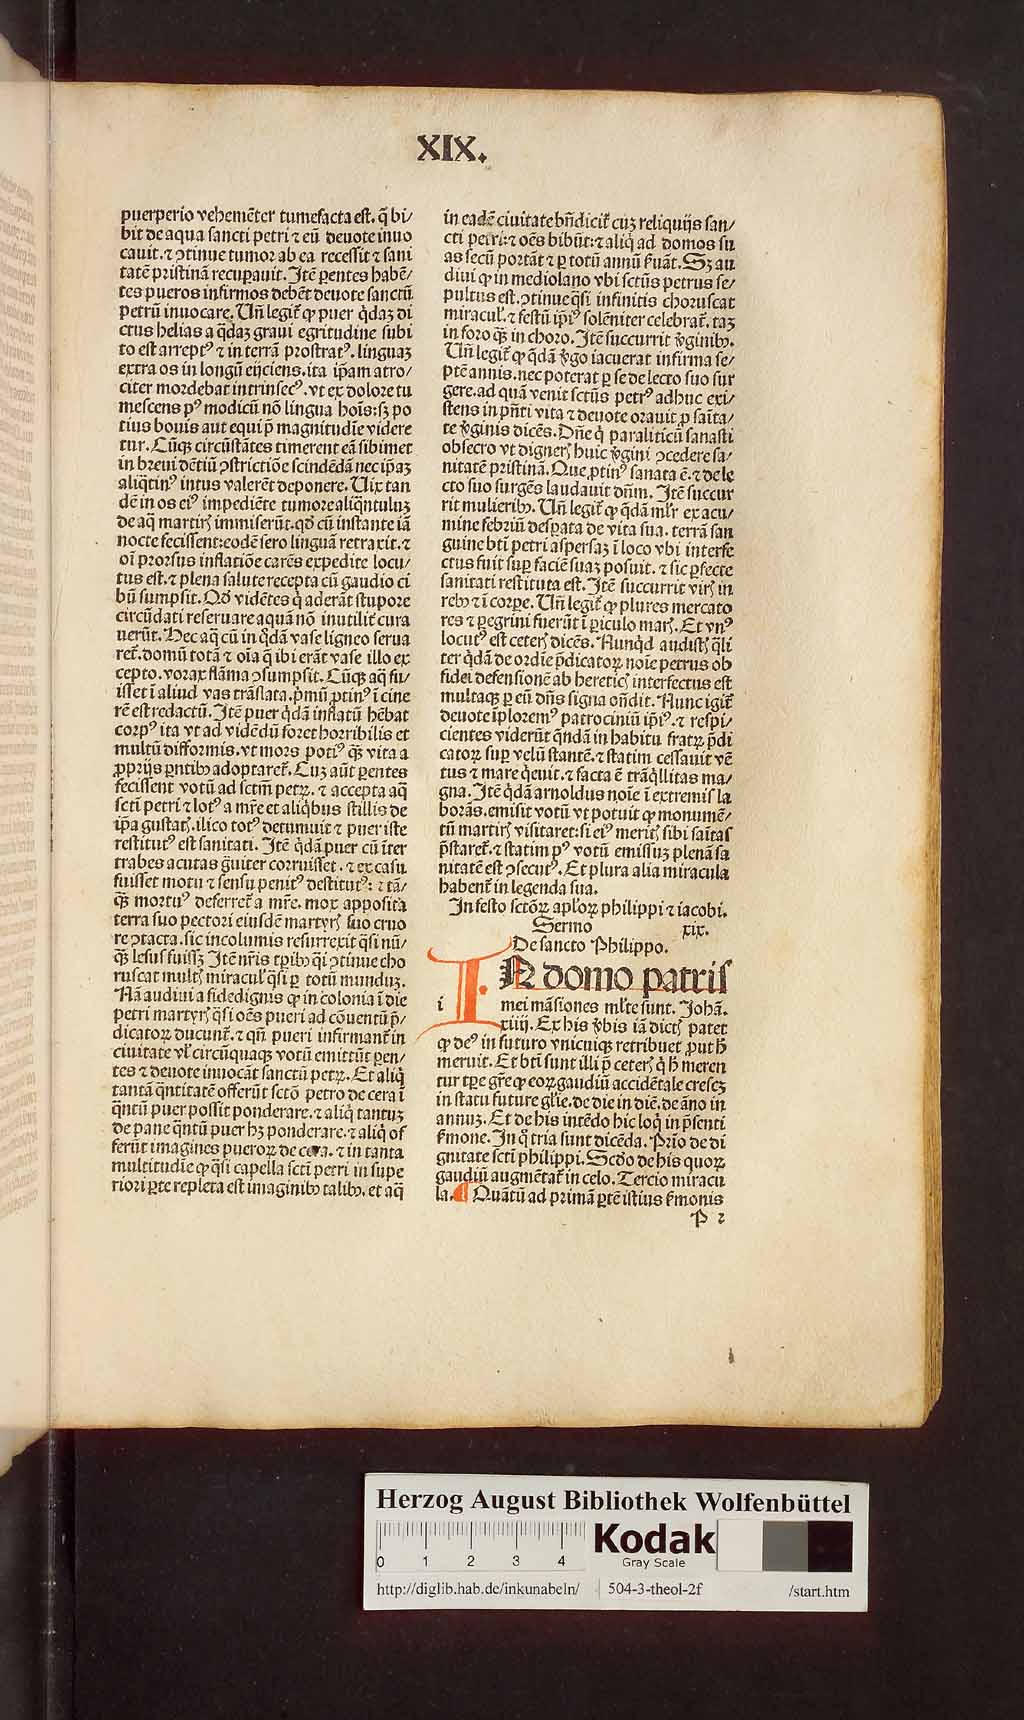 XIX.
puerperio vehemēter tumefacta est. q̄ bi⸗
bit de aqua sancti petri ⁊ eū deuote inuo
cauit. ⁊ ꝯtinue tumor ab ea recessit ⁊ sani
tatē pristinā recuperauit. Itē parentes habē⸗
tes pueros infirmos debēt deuote sanctū
petrū inuocare. Un̄ legit̄ ꝙ puer q̄daꝫ di
ctus helias a q̄daꝫ graui egritudine subi
to est arreptꝰ ⁊ in terrā prostratꝰ. linguaꝫ
extra os in longū eijciens. ita ip̄am atro⸗
citer mordebat intrinsecꝰ. vt ex dolore tu
mescens pꝰ modicū nō lingua hoīs: sꝫ po
tius bouis aut equi p̄ magnitudīe videre
tur. Cūqꝫ circūstātes timerent eā sibimet
in breui dētiū ꝯstrictiōe scindēdā nec ip̄aꝫ
aliq̄tinꝰ intus valerēt deponere. Uix tan
dē in os eiꝰ impediēte tumore aliq̄ntuluꝫ
de aq̄ martirꝭ immiserūt. qd̄ cū instante iā
nocte fecissent: eodē sero linguā retraxit. ⁊
oī prorsus inflatiōe carēs expedite locu⸗
tus est. ⁊ plena salute recepta cū gaudio ci
bū sumpsit. Qd̄ vidētes q̄ aderāt stupore
circūdati reseruare aquā nō inutilit̄ cura
uerūt. Hec aq̄ cū in q̄dā vase ligneo serua
ret̄. domū totā ⁊ oīa q̄ ibi erāt vase illo ex
cepto. vorax flāma ꝯsumpsit. Cūqꝫ aq̄ fu⸗
isset ī aliud vas trāslata. p̄mū ꝓtinꝰ ī cine
rē est redactū. Itē puer q̄dā inflatū hēbat
corpꝰ ita vt ad vidēdū foret horribilis et
multū difformis. vt mors potiꝰ qꝫ̄ vita a
ꝓprijs parētibꝫ adoptaret̄. Cuꝫ aūt parentes
fecissent votū ad sctm̄ petꝝ. ⁊ accepta aq̄
scti petri ⁊ lotꝰ a mr̄e et aliq̄bus stillis de
ip̄a gustatꝭ. ilico totꝰ detumuit ⁊ puer iste
restitutꝰ est sanitati. Itē q̄dā puer cū īter
trabes acutas grauiter corruisset. ⁊ ex casu
fuisset motu ⁊ sensu penitꝰ destitutꝰ: ⁊ tā⸗
qꝫ̄ mortuꝰ deferret̄ a mr̄e. mox apposita
terra suo pectori eiusdē martyrꝭ suo cruo
re ꝯtacta. sic incolumis resurrexit q̄si nū⸗
qꝫ̄ lesus fuissꝫ Itē nr̄is tp̄ibꝫ q̄i ꝯtinue cho
ruscat multꝭ miracul̄ q̄si per totū munduꝫ.
Nā audiui a fidedignis ꝙ in colonia ī die
petri martyrꝭ q̄si oēs pueri ad cōuentū p̄⸗
dicatoꝝ ducunt̄. ⁊ qn̄ pueri infirmant̄ in
ciuitate vl̄ circūquaqꝫ votū emittūt paren⸗
tes ⁊ deuote inuocāt sanctū petꝝ. Et aliq̄
tantā q̄ntitatē offerūt sctō petro de cera ī
q̄ntū puer possit ponderare. ⁊ aliq̄ tantuꝫ
de pane q̄ntū puer hꝫ ponderare. ⁊ aliq̄ of
ferūt imagines pueroꝝ de cera. ⁊ in tanta
multitudīe ꝙ q̄si capella scti petri in supe
riori parte repleta est imaginibꝫ talibꝫ. et aq̄
in eadē ciuitate bn̄dicit̄ cuꝫ reliquijs san⸗
cti petri: ⁊ oēs bibūt: ⁊ aliq̄ ad domos su
as secū portāt ⁊ per totū annū ẜuāt. Sꝫ au
diui ꝙ in mediolano vbi sctūs petrus se⸗
pultus est. ꝯtinue q̄si infinitis choruscat
miracul̄. ⁊ festū ip̄iꝰ solēniter celebrat̄. taꝫ
in foro qꝫ̄ in choro. Itē succurrit v̓ginibꝫ.
Un̄ legit̄ ꝙ q̄dā v̓go iacuerat infirma se⸗
ptē annis. nec poterat per se de lecto suo sur
gere. ad quā venit sctūs petrꝰ adhuc exi⸗
stens in pn̄ti vita ⁊ deuote orauit ꝓ saīta⸗
te v̓ginis dicēs. Dn̄e q̄ paraliticū sanasti
obsecro vt dignerꝭ huic v̓gini ꝯcedere sa⸗
nitatē pristinā. Que ꝓtinꝰ sanata ē. ⁊ de le
cto suo surgēs laudauit dn̄m. Itē succur
rit mulieribꝫ. Un̄ legit̄ ꝙ q̄dā ml̄r ex acu⸗
mine febriū desparata de vita sua. terrā san
guine bti petri aspersaꝫ ī loco vbi interfe
ctus fuit super faciē suaꝫ posuit. ⁊ sic perfecte
sanitati restituta est. Itē succurrit virꝭ in
rebꝫ ⁊ ī corpore. Un̄ legit̄ ꝙ plures mercato
res ⁊ peregrini fuerūt ī periculo marꝭ. Et vnꝰ
locutꝰ est ceterꝭ dicēs. Nunqd̄ audistꝭ q̄li
ter q̄dā de ordīe p̄dicatoꝝ noīe petrus ob
fidei defensionē ab hereticꝭ interfectus est
multaqꝫ per eū dn̄s signa on̄dit. Nunc igit̄
deuote īploremꝰ patrociniū ip̄iꝰ. ⁊ respi⸗
cientes viderūt q̄ndā in habitu fratꝝ p̄di
catoꝝ super velū stantē. ⁊ statim cessauit vē
tus ⁊ mare q̄euit. ⁊ facta ē trāq̄llitas ma⸗
gna. Itē q̄dā arnoldus noīe ī extremis la
borās. emisit votū vt potuit ꝙ monumē⸗
tū martirꝭ visitaret: si eiꝰ meritꝭ sibi saītas
p̄staret̄. ⁊ statim pꝰ votū emissuꝫ plenā sa
nitatē est ꝯsecutꝰ. Et plura alia miracula
habent̄ in legenda sua.
In festo sctōꝝ apl̄oꝝ philippi ⁊ iacobi.
Sermo xix.
De sancto Philippo.
IN domo patris
i mei māsiones ml̄te sunt. Johā.
xiiij. Ex his v̓bis iā dictꝭ patet
ꝙ deꝰ in futuro vnicuiqꝫ retribuet ꝓut h̄
meruit. Et bti sunt illi p̄ ceterꝭ q̄ h̄ meren
tur tp̄e gr̄e ꝙ eoꝝ gaudiū accidētale crescꝫ
in statu future gl̄ie. de die in diē. de āno in
annuꝫ. Et de his intēdo hic loq̄ in p̄senti
ẜmone. In q̄ tria sunt dicēda. Prīo de di
gnitate scti philippi. Scd̄o de his quoꝝ
gaudiū augmētat̄ in celo. Tercio miracu
la. ¶ Quātū ad primā partē istius ẜmonis
P 2
Herzog August Bibliothek Wolfenbüttel
0 1 2 3 4
Kodak
Gray Scale
http://diglib.hab.de/inkunabeln/ 504-3-theol-2f /start.htm